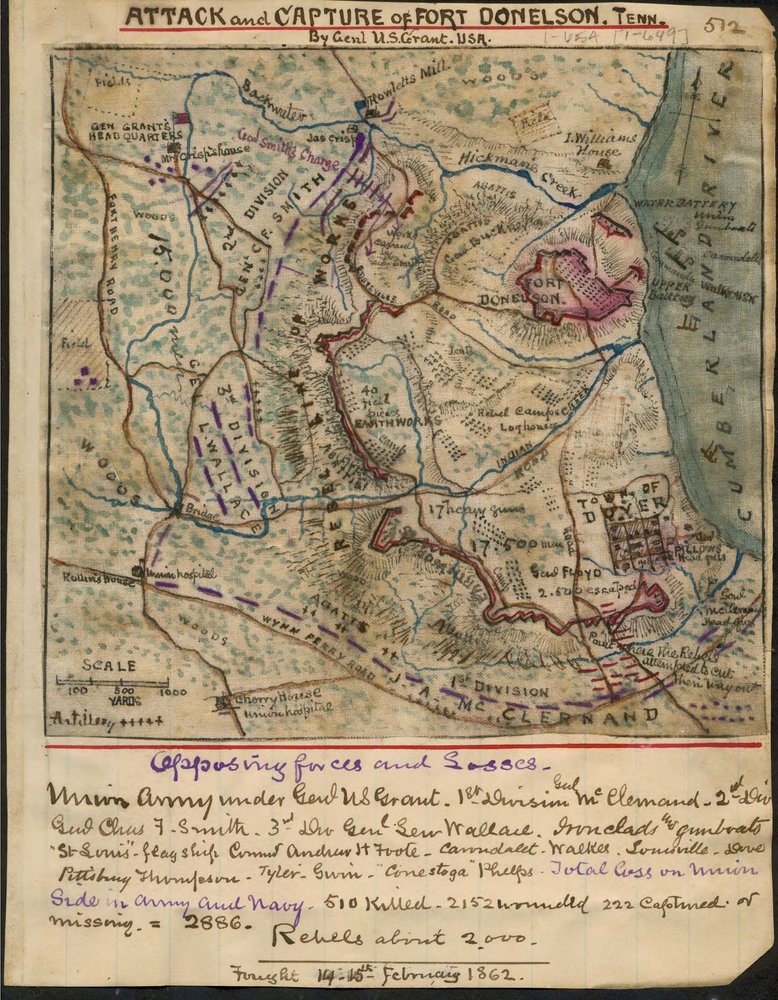 ATTACK and CAPTURE of FORT DONELSON. TENN.
By Genl U.S. Grant. USA.
1-USA [1-649]
512
Fields
Backwater
Rowletts Mill
WOODS
GEN GRANT'S
HEADQUARTERS
Mrs Crisps house
Jas Crisp
Genl Smiths Charge
Field
I. Williams
House
Hickmans Creek.
WOODS
NORTHERN ROAD
15000 men
2nd DIVISION
GEN. C.F. SMITH
ABATTIS
Genl Buckner
FORT
DONELSON.
WATER BATTERY
Union
Gunboats
Carondalet
Walke USN
UPPER
Battery
CUMBERLAND RIVER
ROAD
REBEL LINE OF WORKS
Field
3rd DIVISION
L WALLACE
40
field
pieces
EARTHWORKS
Camp
Tents
Rebel Camps
Log houses
INDIAN CREEK
ROAD
WOODS
Bridge
17 heavy guns
17.500 men
Genl FLOYD
2.500 escaped
TOWN OF
DOVER
PILLOWS
Head qrs
Genl
McClernand
head qrs
Rollins House
Union hospital
ABATTIS
WOODS
WYNN FERRY ROAD
1st DIVISION
J. A. Mc CLERNAND
Point where the Rebels
attempted to cut
their way out
SCALE
100 500 1000
YARDS
Cherry House
Union hospital
Artillery +++++
Opposing forces and Losses-
Union Army under Genl US Grant. 1st Division Genl McClernand - 2nd Div
Genl Chas F. Smith. 3rd Div Genl Lew Wallace. Ironclads & gunboats
"St Louis" - flagship Comd Andrew H Foote - Carondalet. Walke. Louisville - Dove
Pittsburg Thompson - Tyler - Gwin - "Conestoga" Phelps. Total loss on Union
Side in Army and Navy. 510 Killed - 2152 wounded 222 Captured. or
missing. = 2886.
Rebels about 2,000.
Fought 14-15th February 1862.